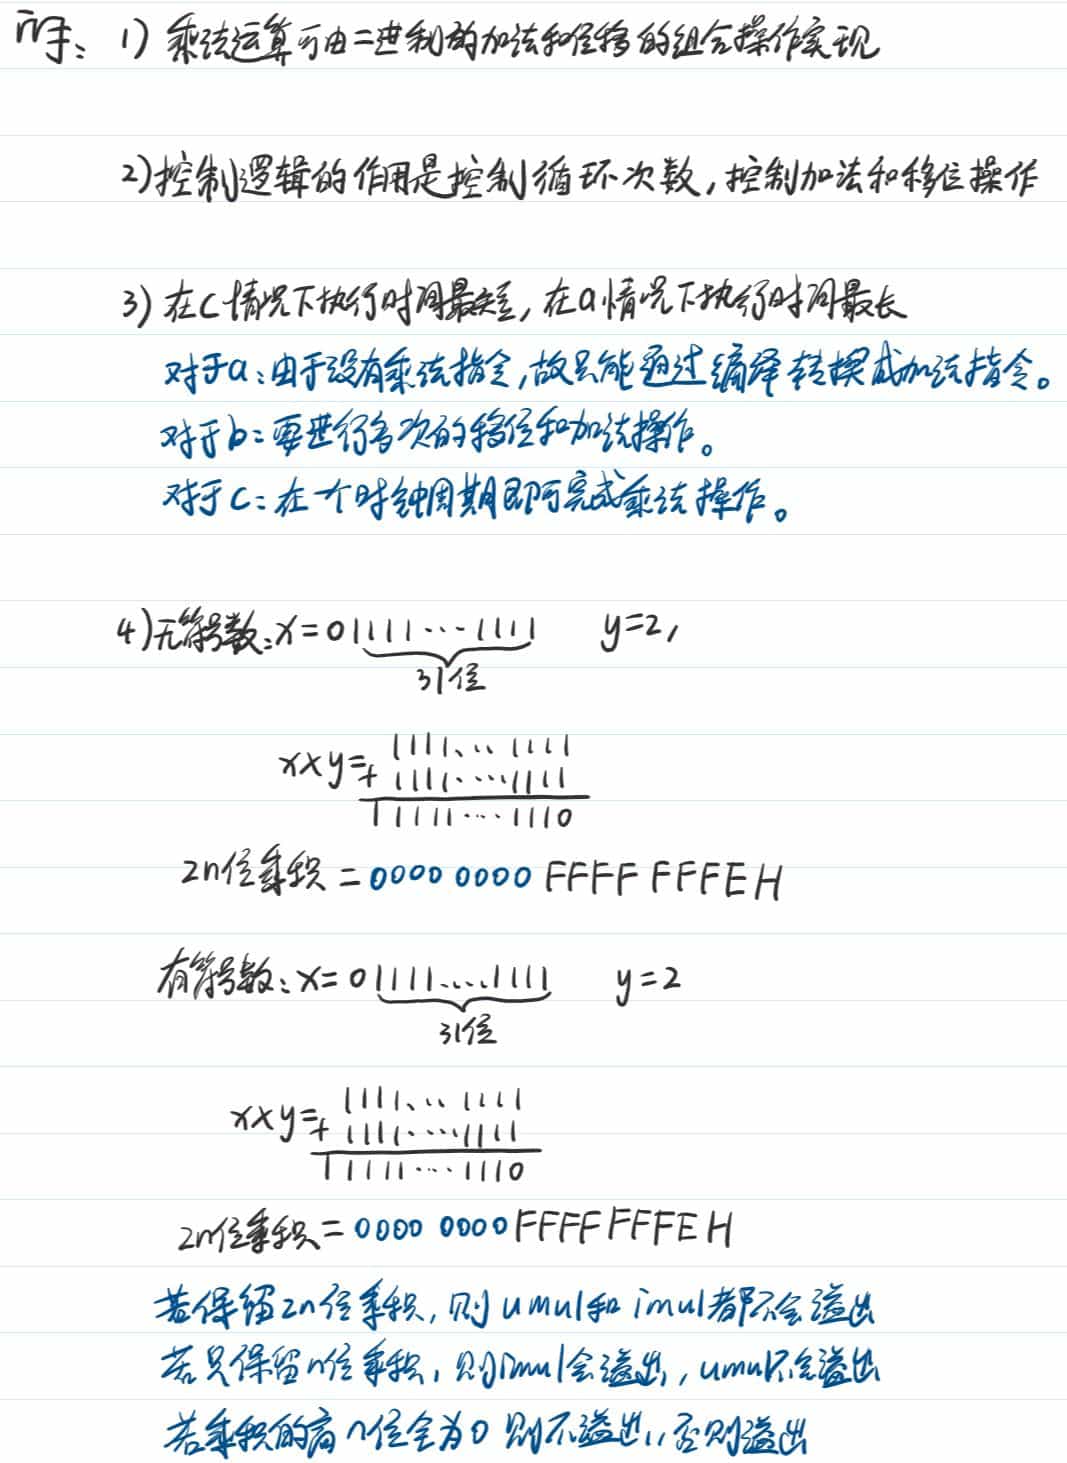 解：1）乘法运算可由二进制的加法和位移的组合操作实现
2)控制逻辑的作用是控制循环次数，控制加法和移位操作
3）在C情况下执行时间最短，在a情况下执行时间最长
对于a：由于没有乘法指令，故只能通过编译转换成加法指令。
对于b：要进行多次的移位和加法操作。
对于C：在一个时钟周期即可完成乘法操作。
4)无符号数：x=01111···1111 y=2，
31位
1111···1111
x×y=+ 1111····1111
11111···1110
2n位乘积 = 0000 0000 FFFF FFFEH
有符号数：x=01111....1111 y=2
31位
1111···1111
x×y=+ 1111····1111
11111···1110
2n位乘积 = 0000 0000 FFFF FFFEH
若保留2n位乘积，则umul和imul都不会溢出
若只保留n位乘积，则imul会溢出，umul不会溢出
若乘积的高n位全为0则不溢出，否则溢出